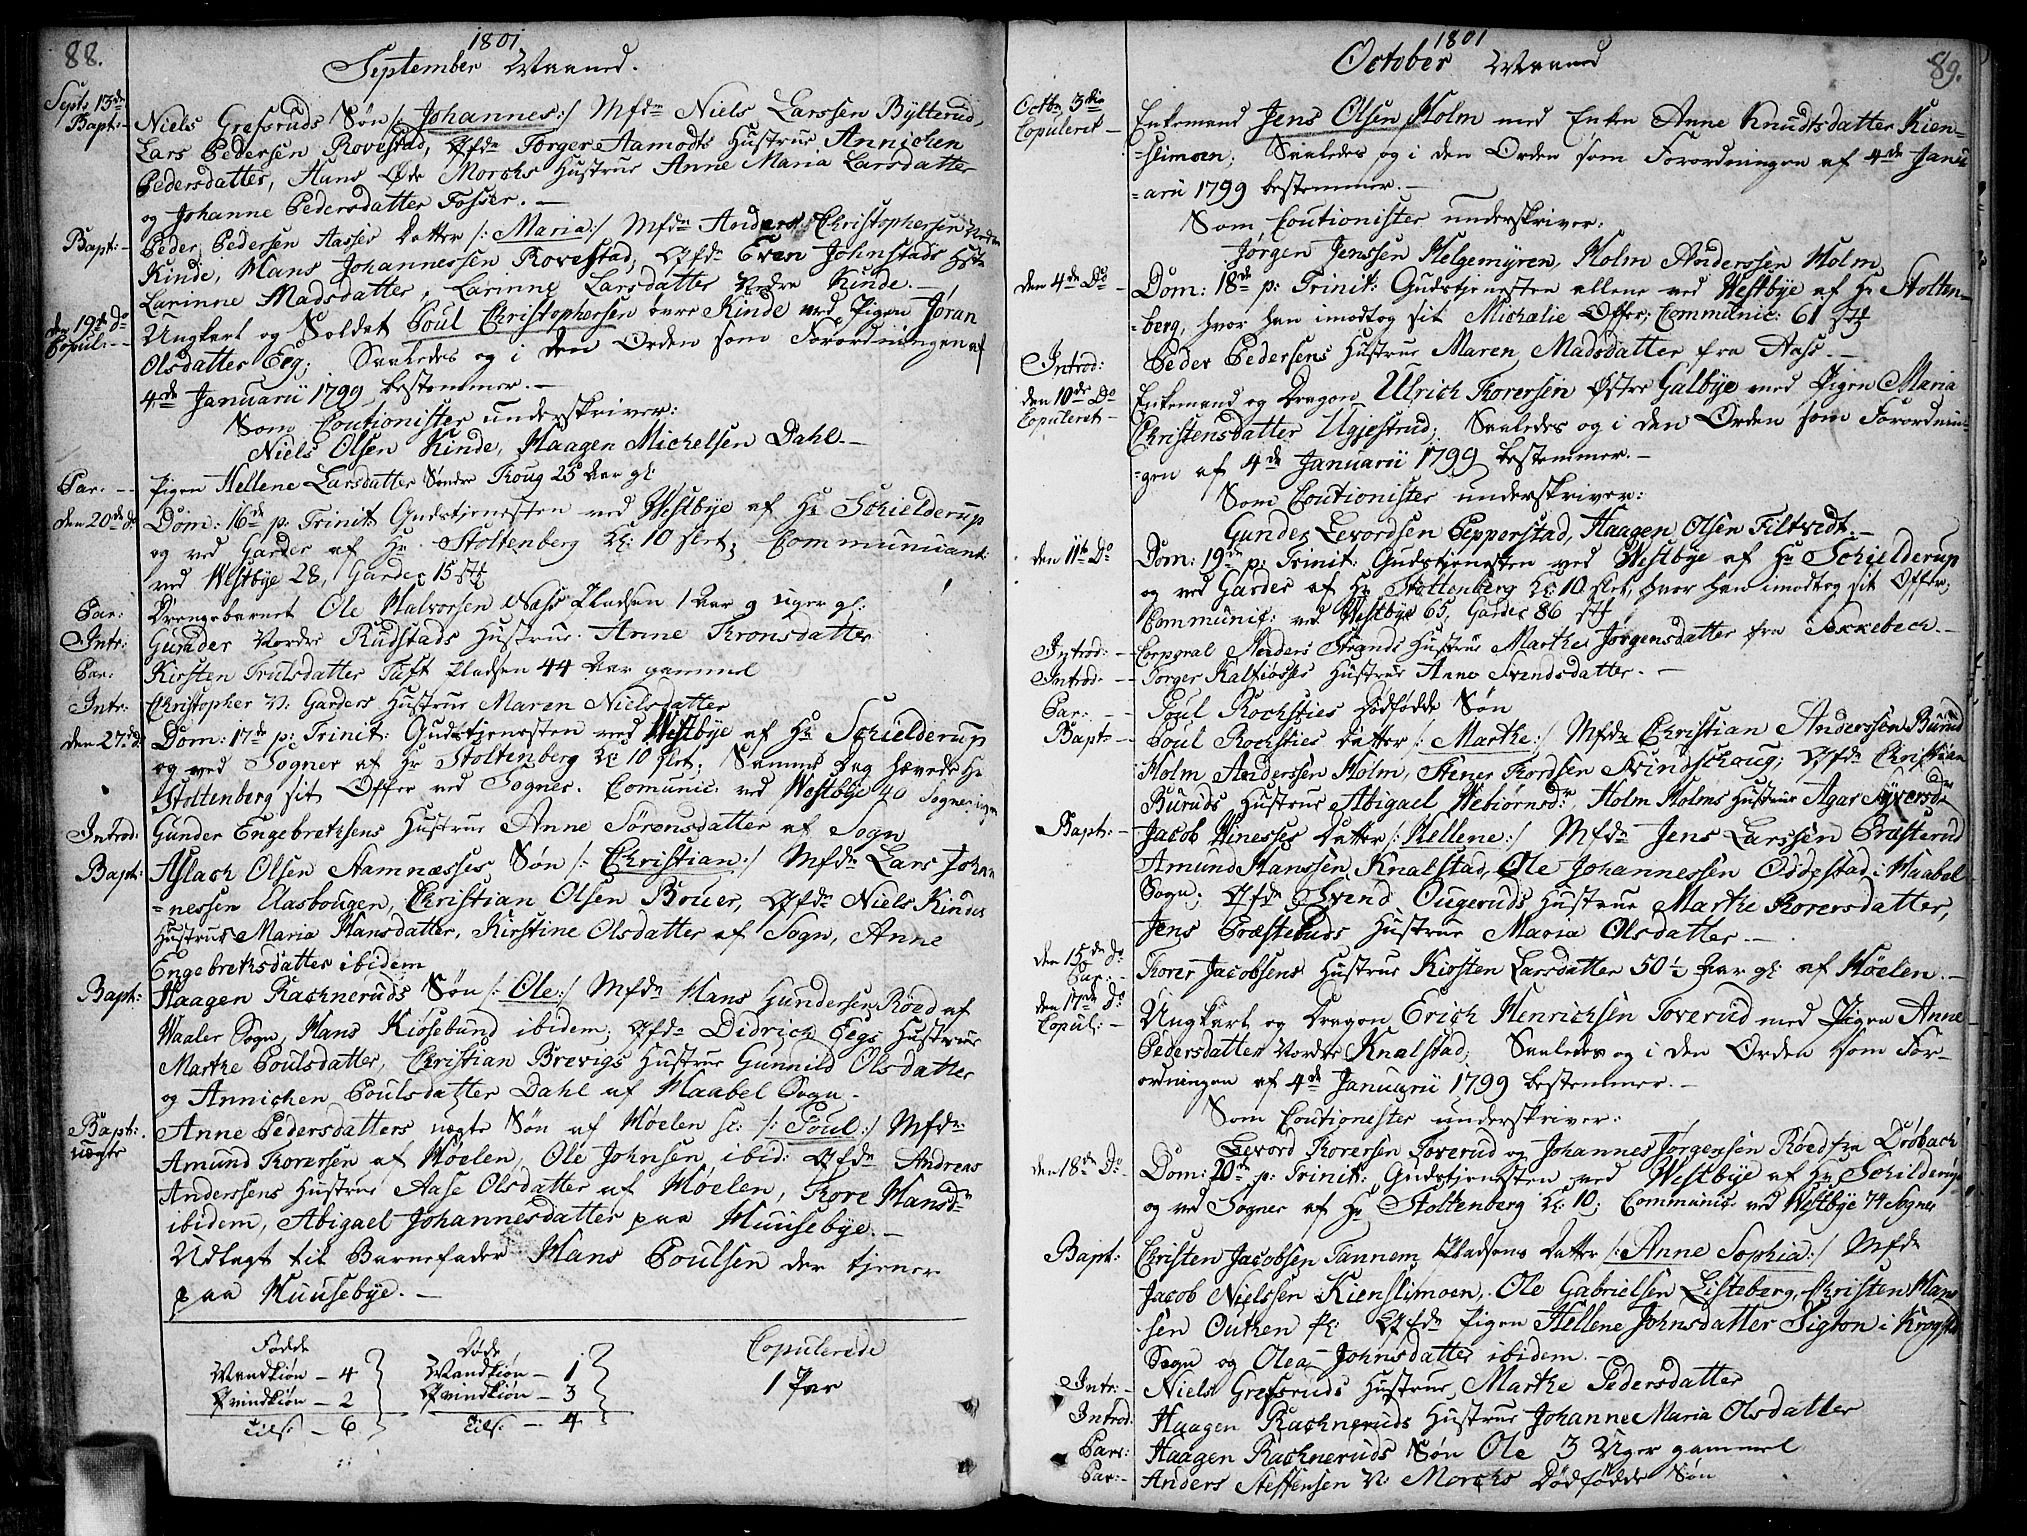 88.
1801
September Maaned.
Septb 13de
Bapt:- Niels Grefsruds Søn /: Johannes :/ Mfdr Niels Larssen Bÿlterud,
Lars Pedersen Rovestad, Qfdr Torger Aamodts Hustrue Annichen
Pedersdatter, Hans Øde Morchs Hustrue Anne Maria Larsdatter
og Johanne Pedersdatter Fosser.-
Bapt:- Peder Pedersen Aasses Datter /: Maria :/ Mfdr Anders Christophersen Nedre
Kinde, Hans Johannessen Rovestad, Qfdr Even Johnstads Hstr
Larinne Madsdatter, Larinne Larsdatter Nedre Kinde.-
den 19de Do
Copul:-- Ungkarl og Soldat Poul Christophersen øvre Kinde med Pigen Jøran
Olsdatter Eeg; Saaledes og i den Orden som Forordningen af
4de Januarii 1799 bestemmer.-
Som Coutionister underskriver:
Niels Olsen Kinde, Haagen Michelsen Dahl.-
Par:-- Pigen Hellene Larsdatter Søndre Krug 25 Aar gl:
den 20de do Dom: 16de p: Trinit: Gudstjenesten ved Westbye af Hr Schielderup
og ved Garder af Hr Stoltenberg Kl: 10 slet; Communicant:
ved Westbye 28, Garder 15 st
Par: Drengebarnet Ole Halvorsen Pladsen 1 Aar 9 Uger gl:
Intr: Gunder Nordre Rudstads Hustrue Anne Kronsdatter
Par: Kirsten Trulsdatter Tuft Pladsen 44 Aar gammel
Intr: Christopher N: Garders Hustrue Maren Nielsdatter
den 27de do Dom: 17de p: Trinit: Gudstjenesten ved Westbye af Hr Schielderup
og ved Sogner af Hr Stoltenberg Kl: 10 slet. Samme Dag hævede Hr
Stoltenberg sit Offer ved Sogner. Comunic: ved Westbye 40 Sogner ingen
Introd: Gunder Engebretsens Hustrue Anne Sørensdatter af Sogn
Bapt: Aslach Olsen Hamnæsses Søn /: Christian :/ Mfdr Lars Johan-
=nessen Aasbougen, Christian Olsen Brüer, Qfdr Niels Kindes
Hustrue Maria Hansdatter, Kirstine Olsdatter af Sogn, Anne
Engebrethsdatter ibidem
Bapt: Haagen Rachneruds Søn /: Ole :/ Mfdr Hans Gundersen Røed af
Waaler Sogn, Hans Kiosebund ibidem; Qfdr Didrich Eegs Hustrue
Marthe Poulsdatter, Christian Brevigs Hustrue Gunnild Olsdatter
og Annichen Poulsdatter Dahl af Haabel Sogn.
Bapt:
uægte Anne Pedersdatters uægte Søn af Høelen sc: /: Poul :/ Mfdr
Amund Torersen af Høelen, Ole Johnsen ibid: Qfdr Andreas
Anderssens Hustrue Aase Olsdatter af Høelen, Tore Hansdr
ibidem, Abigael Johannesdatter paa Huusebye.-
Udlagt til Barnefader Hans Poulsen der tjener
paa Huusebye.-
Fødde Døde Copulerede
Mandkiøn - 4 Mandkiøn - 1 1 Par
Qvindkiøn - 2 Qvindkiøn - 3
Tils: - 6 Tils: - 4
1801
October Maaned
89.
Octbr 3die
Copuleret - Enkemand Jens Olsen Holm med Enken Anne Knudtsdatter Kien-
=slimoen; Saaledes og i den Orden som Forordningen af 4de Janu
=arii 1799 bestemmer.-
Som Coutionister underskriver:
Jørgen Jenssen Helgemÿren, Holm Anderssen Holm
den 4de Do - Dom: 18de p: Trinit: Gudstjenesten allene ved Westbye af Hr Stolten-
=berg, hvor han imodtog sit Michælie Offer; Communic: 61 st
Introd: Peder Pedersens Hustrue Maren Madsdatter fra Aass.-
den 10de Do
Copuleret - Enkemand og Dragon Ulrich Torersen Østre Galbÿe med Pigen Maria
Christensdatter Ugjestrud; Saaledes og i den Orden som Forordnin-
=gen af 4de Januarii 1799 bestemmer.-
Som Coutionister underskriver:
Gunder Levordsen Pepperstad, Haagen Olsen Filtvedt.-
den 11te Do Dom: 19de p: Trinit: Gudstjenesten ved Westbye af Hr Schielderup
og ved Garder af Hr Stoltenberg Kl: 10 slet, hvor han imodtog sit Offer,
Communic: ved Westbye 65, Garder 86 st
Introd:-- Corporal Anders Strands Hustrue Marthe Jørgensdatter fra Sækkebech.-
Introd:-- Torger Kalfiøsses Hustrue Anne Svendsdatter.-
Par:-- Poul Rochsties Dødfødde Søn
Bapt- Poul Rochsties Datter /: Marthe :/ Mfdr Christian Anderssen Burud
Holm Anderssen Holm, Stener Tordsen Svindschaug; Qfdr Christian
Buruds Hustrue Abigael Webiørnsdr, Holm Holms Hustrue Agar Syversdr
Bapt:- Jacob Winesses Datter /: Hellene :/ Mfdr Jens Larssen Præsterud
Amund Hanssen Knalstad, Ole Johannessen Oddestad i Haabel
Sogn; Qfdr Svend Ougeruds Hustrue Marthe Torersdatter,
Jens Præsteruds Hustrue Maria Olsdatter.-
den 15de Do
Par:- Torer Jacobsens Hustrue Kirsten Larsdatter 50½ Aar gl: af Høelen.-
den 17de Do
Copul:- Ungkarl og Dragon Erich Henrichsen Toverud med Pigen Anne
Pedersdatter Nordre Knalstad; Saaledes og i den Orden som For-
ordningen af 4de Januarii 1799 bestemmer.-
Som Coutionester underskriver:
Levord Torersen Toverud og Johannes Jørgenssen Røed fra Drøbach
den 18de Do- Dom: 20de p: Trinit: Gudstjenesten ved Westbye af Hr Schilderup
og ved Sogner af Hr Stoltenberg Kl: 10; Communic: ved Westbye 74 Sogner
Bapt: Christen Jacobsen Tannem Pladsens Datter /: Anne Sophia :/ Mfdr
Jacob Nielssen Kienslimoen, Ole Gabrielsen Listeberg, Christen Han-
sen Outhen Qfdr Pigen Hellene Johnsdatter Sigton i Krogstad
Sogn og Olea Johnsdatter ibidem.-
Intr:- Niels Grefsruds Hustrue Marthe Pedersdatter
Introd: Haagen Rachneruds Hustrue Johanne Maria Olsdatter
Par: Haagen Rachneruds Søn Ole 3 Uger gammel
Par:- Anders Steffensen N: Morchs Dødfødde Søn